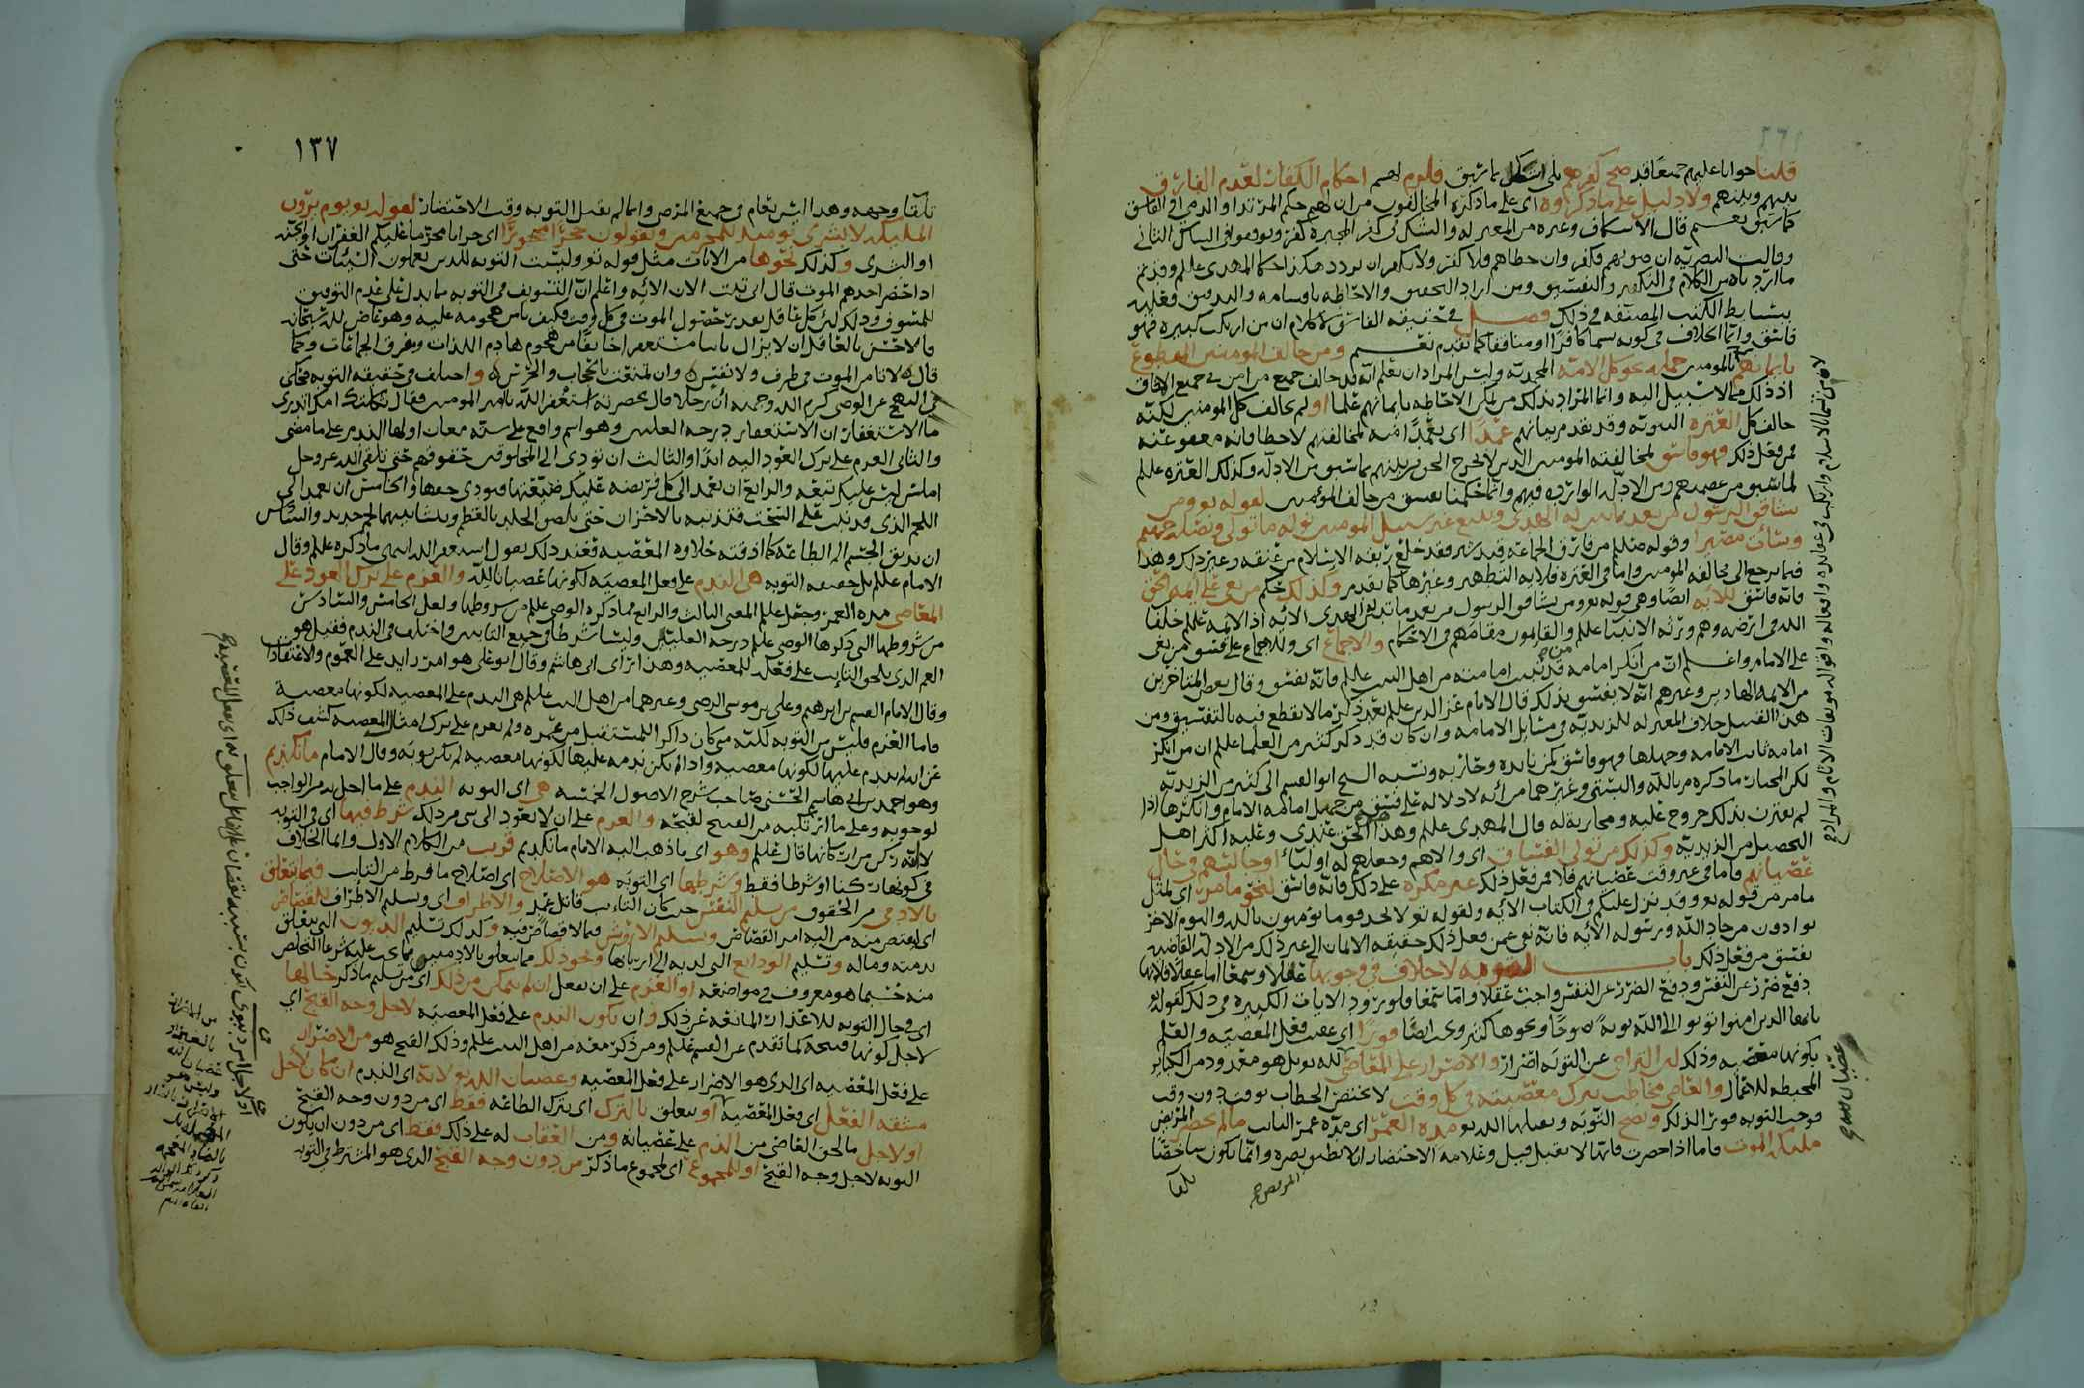 قلنا جوابا عليهم جميعا قد صح كفرهم بما سبق فلزم لهم احكام الكفار لعدم الفارق
بينهم وبينهم ولا دليل على ما ذكروه اي على ما ذكره المخالفون من ان لهم حكم المرتد او الذمي او الفاسق
وقالت البصرية ان صوبهم فكفر وان خطاهم فلا كفر ولا يكفر ان تردد هكذا حكا المهدي عللم
ما اردناه من الكلام في التكفير والتفسيق ومن اراد التحقيق والاحاطة باقسامه والتدقيق فعليه
ببسايط الكتب المصنفة في ذلك فصل في حقيقة الفاسق لا كلام ان من ارتكب كبيرة فهو
فاسق وانما الخلاف في كونه يسما كافرا او منافقا كما تقدم ومن خالف المومنين المقطوع
بايمانهم المومنين جملة نحو كل الامة المحمدية وليس المراد ان يعلم انه قد خالف جميع من امن في جميع الافاق
اذ ذلك مما لا سبيل اليه وانما المراد بذلك من يمكن الاحاطة بايمانهم علما او لم يخالف كل المومنين لكنه
خالف كل العترة النبوية وقد تقدم بيانهم عمدا اي تعمدا منه لمخالفتهم لا خطا فانه معفو عنه
فمن فعل ذلك فهو فاسق لمخالفته المومنين الذين لا يخرج الحق من بينهم بما سبق من الادلة وكذلك العترة علللم
لما سبق من عصمتهم ومن الادلة الواردة فيهم وانما حكمنا بفسق من خالف المومنين لقوله تع ومن
يشاقق الرسول من بعد ما تبين له الهدى ويتبع غير سبيل المومنين نوله ما تولى ونصله جهنم
وساءت مصيرا وقوله صللم من فارق الجماعة قيد شبر فقد خلع ربقة الاسلام من عنقه وغير ذلك وهذا
فيما يرجع الى مخالفة المومنين واما في العترة فلاية التطهير وغيرها كما تقدم وكذلك حكم من بغى على ايمة الحق
فانه فاسق للاية ايضا وهي قوله تع ومن يشاقق الرسول من بعد ما تبين له الهدى الاية اذ الايمة علللم خلفا
الله في ارضه وهم ورثة الانبيا علللم والقايمون مقامهم في الاحكام والاجماع اي وللاجماع على فسق من بغى
على الامام واعلم ان من انكر امامة من قد ثبت امامته من اهل البيت علللم فانه يفسق وقال بعض المتاخرين
من الايمة الهادين وغيرهم انه لا يفسق بذلك قال الامام عز الدين علللم بعد ذكره ما لا يقطع فيه بالتفسيق ومن
هذا القبيل خلاف المعتزلة للزيدية في مسايل الامامة وان كان قد ذكر كثير من العلما علللم ان من انكر
امامة ثابت الامامة وجهلها فهو فاسق كمن نابذه وحاربه ونسبه الشيخ ابو القسم الى كثير من الزيدية
لكن المختار ما ذكره م بالله والبستي وغيرهما من انه لا دلالة على فسق من جهل امامة الامام وانكرها اذا
لم يقترن بذلك خروج عليه ومحاربة له قال المهدي علللم وهذا الحق عندي وعليه اكثر اهل
التحصيل من الزيدية وكذلك من تولى الفساق اي والاهم وجعلهم له اوليا او جالسهم في حال
عصيانهم فاما في غير وقت عصيانهم فلا فمن فعل ذلك غير مكره على ذلك فانه فاسق لنحو ما مر اي لمثل
ما مر من قوله تع وقد نزل عليكم في الكتاب الاية ولقوله تع لا تجد قوما يومنون بالله واليوم الاخر
يوادون من حاد الله ورسوله الاية فانه نفى عمن فعل ذلك حقيقة الايمان الى غير ذلك من الادلة القاضية
بفسق من فعل ذلك باب التوبة لا خلاف في وجوبها عقلا وسمعا اما عقلا فلانها
دفع ضرر عن النفس ودفع الضرر عن النفس واجب عقلا واما سمعا فلورود الايات الكثيرة في ذلك كقوله تع
يايها الذين امنوا توبوا الى الله توبة نصوحا ونحوها كثير وتجب ايضا فورا اي عقيب فعل المعصية والعلم
بكونها معصية وذلك لان التراخي عن التوبة اضرار والاصرار على المعاصي
المحبطة للاعمال والعاصي مخاطب بترك معصيته في كل وقت لا يختص الخطاب بوقت دون وقت
فوجب التوبة فورا لذلك وتصح التوبة ويقبلها الله تع مدة العمر اي مدة عمر التايب ما لم يحضر المريض
مليكة الموت فاما اذا حضرت فانها لا تقبل قيل وعلامة الاحتضار
تلقا
عصيان لله تع
١٣٧
تلقا وجهه وهذا ليس بعام في جميع المرضى وانما لم تقبل التوبة وقت الاحتضار لقوله تع يوم يرون
المليكة لا بشرى يوميذ للمجرمين ويقولون حجرا محجورا اي حراما محرما عليكم الغفران او الجنة
او البشرى وكذلك نحوها من الايات مثل قوله تع وليست التوبة للذين يعملون السيئات حتى
اذا حضر احدهم الموت قال اني تبت الان الاية واعلم ان التسويف في التوبة مما يدل على عدم التوفيق
للمسوف وذلك لان كل عاقل يعد حضول الموت في كل وقت فكيف يامن هجومه عليه وهو عاص لله سبحانه
فالاحسن بالعاقل ان لا يزال تايبا مستغفرا خايفا من هجوم هادم اللذات ومفرق الجماعات وكما
قال لا تامن الموت في طرف ولا نفس وان تمنعت بالحجاب والحرس واختلف في حقيقة التوبة فحكى
في النهج عن الوصي كرم الله وجهه ان رجلا قال بحضرته استغفر الله يامير المومنين فقال ثكلتك امك اتدري
ما الاستغفار ان الاستغفار درجة العليين وهو اسم واقع على ستة معان اولها الندم على ما مضى
والثاني العزم على ترك العود اليه ابدا والثالث ان تودي الى المخلوقين حقوقهم حتى تلقى الله عز وجل
املس ليس عليك تبعة والرابع ان تعمد الى كل فريضة عليك ضيعتها فتودي حقها والخامس ان تعمد الى
اللحم الذي قد نبت على السحت فتذيبه بالاحزان حتى يلصق الجلد بالعظم وينشا بينهما لحم جديد والسادس
ان تذيق الجسم الم الطاعة كما اذقته حلاوة المعصية فعند ذلك تقول استغفر الله انتهى ما ذكره علللم وقال
الامام علللم بل حقيقة التوبة هي الندم على فعل المعصية لكونها عصيانا لله والعزم على ترك العود على
المعاصي مدة العمر وجعل علللم المعنى الثالث والرابع مما ذكره الوصي علللم من شروطها ولعل الخامس والسادس
من شروطها التي ذكرها الوصي علللم درجة العليين وليسا شرطا في جميع التايبين واختلف في الندم فقيل هو
الغم الذي يلحق التايب على فعله للمعصية وهذا راي ابي هاشم وقال ابو علي هو امر زايد على الغموم والاعتقادات
وقال الامام القسم بن ابرهيم وعلي بن موسى الرضى وغيرهما من اهل البيت علللم هي الندم على المعصية لكونها معصية
فاما العزم فليس من التوبة لكنه متى كان ذاكرا للمستقبل من عمره ولم يعزم على ترك امثال المعصية كشف ذلك
عن انه لم يندم عليها لكونها معصية واذا لم يكن ندمه عليها لكونها معصية لم تكن توبة وقال الامام مانكديم
وهو احمد بن ابي هاشم الحسني صاحب شرح الاصول الخمسة هي اي التوبة الندم على ما اخل به من الواجب
لوجوبه وعلى ما ارتكبه من القبيح لقبحه والعزم على ان لا يعود الى شي من ذلك شرط فيها اي في التوبة
لا انه ركن قال علللم وهو اي ما ذهب اليه الامام مانكديم قريب من الكلام الاول وانما الخلاف
في كونها ركنا او شرطا فقط وشرطها اي التوبة هو الاصلاح اي اصلاح ما فرط من التايب فيما تعلق
بالادمي من الحقوق من تسليم النفس حيث كان التايب قاتل عمد والاطراف اي وتسليم الاطراف للقصاص
اي ليقتص منه من اليه امر القصاص وتسليم الاروش فيما لا قصاص فيه وكذلك تسليم الديون التي تتعلق
بذمته وماله وتسليم الودايع التي لديه الى اربابها ونحو ذلك مما يتعلق بالادميين مما يجب عليه شرعا التخلص
منه حسبما هو معروف في مواضعه او العزم على ان يفعل ان لم يتمكن من ذلك اي من تسليم ما ذكر حالها
اي في حال التوبة للاعذار المانعة عن ذلك وان يكون الندم على فعل المعصية لاجل وجه القبح اي
لاجل كونها قبيحة لما تقدم عن القسم علللم ومن ذكر معه من اهل البيت علللم وذلك القبح هو من الاضرار
على فعل المعصية اي الذي هو الاصرار على فعل المعصية وعصيان الله تع لا انه اي الندم ان كان لاجل
مشقة الفعل اي فعل المعصية او يتعلق بالترك اي بترك الطاعة فقط اي من دون وجه القبح
او لاجل ما لحق العاصي من الذم على عصيانه ومن العقاب له على ذلك فقط اي من دون ان يكون
التوبة لاجل وجه القبح او للمجموع اي لمجموع ما ذكر من دون وجه القبح الذي هو المشترط في التوبة